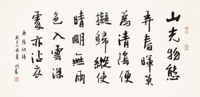 山光物態
弄春暉莫
為陰便
擬歸縱使
晴明無雨
色入雲深
處亦沾衣